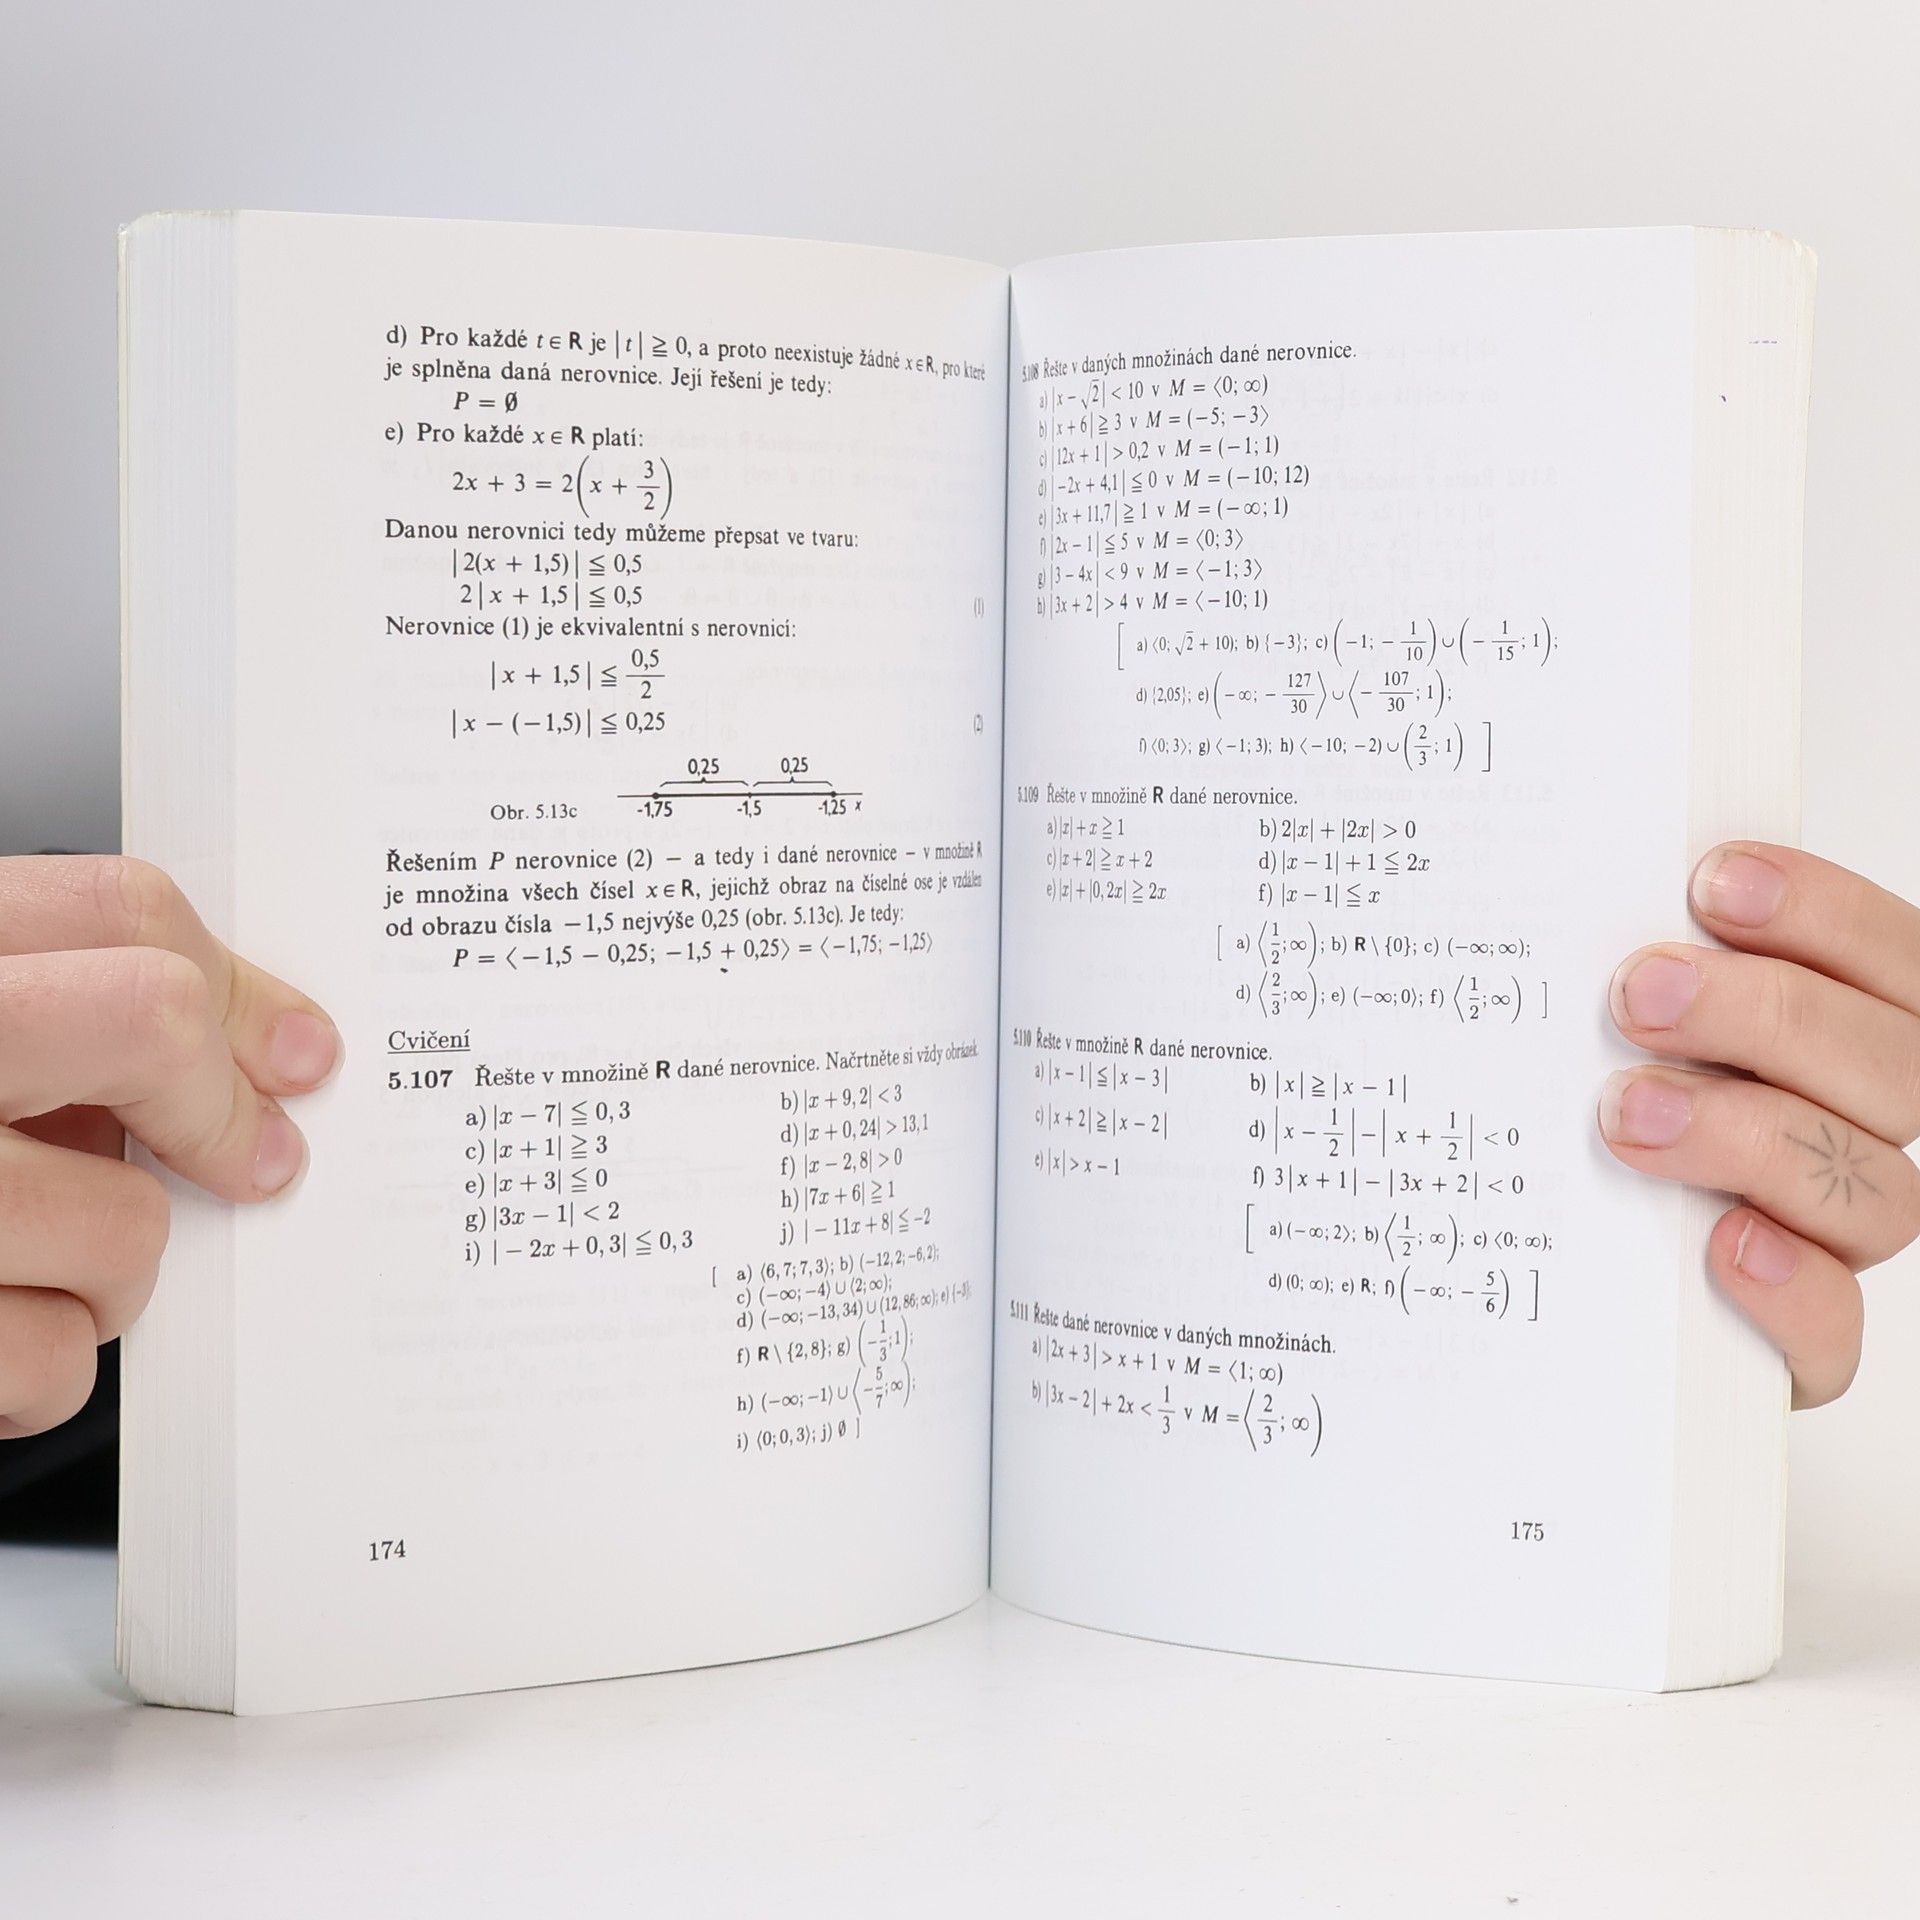 d) Pro každé t ∈ R je |t| ≧ 0, a proto neexistuje žádné x ∈ R, pro které
je splněna daná nerovnice. Její řešení je tedy:
P = ∅
e) Pro každé x ∈ R platí:
2x + 3 = 2(x + 3/2)
Danou nerovnici tedy můžeme přepsat ve tvaru:
|2(x + 1,5)| ≦ 0,5
2|x + 1,5| ≦ 0,5 (1)
Nerovnice (1) je ekvivalentní s nerovnicí:
|x + 1,5| ≦ 0,5/2
|x − (−1,5)| ≦ 0,25 (2)
0,25 0,25
Obr. 5.13c -1,75 -1,5 -1,25 x
Řešením P nerovnice (2) − a tedy i dané nerovnice − v množině R
je množina všech čísel x ∈ R, jejichž obraz na číselné ose je vzdálen
od obrazu čísla −1,5 nejvýše 0,25 (obr. 5.13c). Je tedy:
P = ⟨−1,5 − 0,25; −1,5 + 0,25⟩ = ⟨−1,75; −1,25⟩
Cvičení
5.107 Řešte v množině R dané nerovnice. Načrtněte si vždy obrázek.
a) |x − 7| ≦ 0,3 b) |x + 9,2| < 3
c) |x + 1| ≧ 3 d) |x + 0,24| > 13,1
e) |x + 3| ≦ 0 f) |x − 2,8| > 0
g) |3x − 1| < 2 h) |7x + 6| ≧ 1
i) |− 2x + 0,3| ≦ 0,3 j) |− 11x + 8| ≦ −2
[ a) ⟨6,7; 7,3⟩; b) (−12,2; −6,2);
c) (−∞; −4⟩ ∪ ⟨2; ∞);
d) (−∞; −13,34) ∪ (12,86; ∞); e) {−3};
f) R \ {2,8}; g) (−1/3; 1);
h) (−∞; −1⟩ ∪ ⟨−5/7; ∞);
i) ⟨0; 0,3⟩; j) ∅ ]
174
5.108 Řešte v daných množinách dané nerovnice.
a) |x − √2| < 10 v M = ⟨0; ∞)
b) |x + 6| ≧ 3 v M = (−5; −3⟩
c) |12x + 1| > 0,2 v M = (−1; 1)
d) |−2x + 4,1| ≦ 0 v M = (−10; 12)
e) |3x + 11,7| ≧ 1 v M = (−∞; 1)
f) |2x − 1| ≦ 5 v M = ⟨0; 3⟩
g) |3 − 4x| < 9 v M = ⟨−1; 3⟩
h) |3x + 2| > 4 v M = ⟨−10; 1)
[ a) ⟨0; √2 + 10); b) {−3}; c) (−1; −1/10) ∪ (−1/15; 1);
d) {2,05}; e) (−∞; −127/30⟩ ∪ ⟨−107/30; 1);
f) ⟨0; 3⟩; g) ⟨−1; 3); h) ⟨−10; −2) ∪ (2/3; 1) ]
5.109 Řešte v množině R dané nerovnice.
a) |x| + x ≧ 1 b) 2|x| + |2x| > 0
c) |x + 2| ≧ x + 2 d) |x − 1| + 1 ≦ 2x
e) |x| + |0,2x| ≧ 2x f) |x − 1| ≦ x
[ a) ⟨1/2; ∞); b) R \ {0}; c) (−∞; ∞);
d) ⟨2/3; ∞); e) (−∞; 0⟩; f) ⟨1/2; ∞) ]
5.110 Řešte v množině R dané nerovnice.
a) |x − 1| ≦ |x − 3| b) |x| ≧ |x − 1|
c) |x + 2| ≧ |x − 2| d) |x − 1/2| − |x + 1/2| < 0
e) |x| > x − 1 f) 3|x + 1| − |3x + 2| < 0
[ a) (−∞; 2⟩; b) ⟨1/2; ∞); c) ⟨0; ∞);
d) (0; ∞); e) R; f) (−∞; −5/6) ]
5.111 Řešte dané nerovnice v daných množinách.
a) |2x + 3| > x + 1 v M = ⟨1; ∞)
b) |3x − 2| + 2x < 1/3 v M = ⟨2/3; ∞)
175